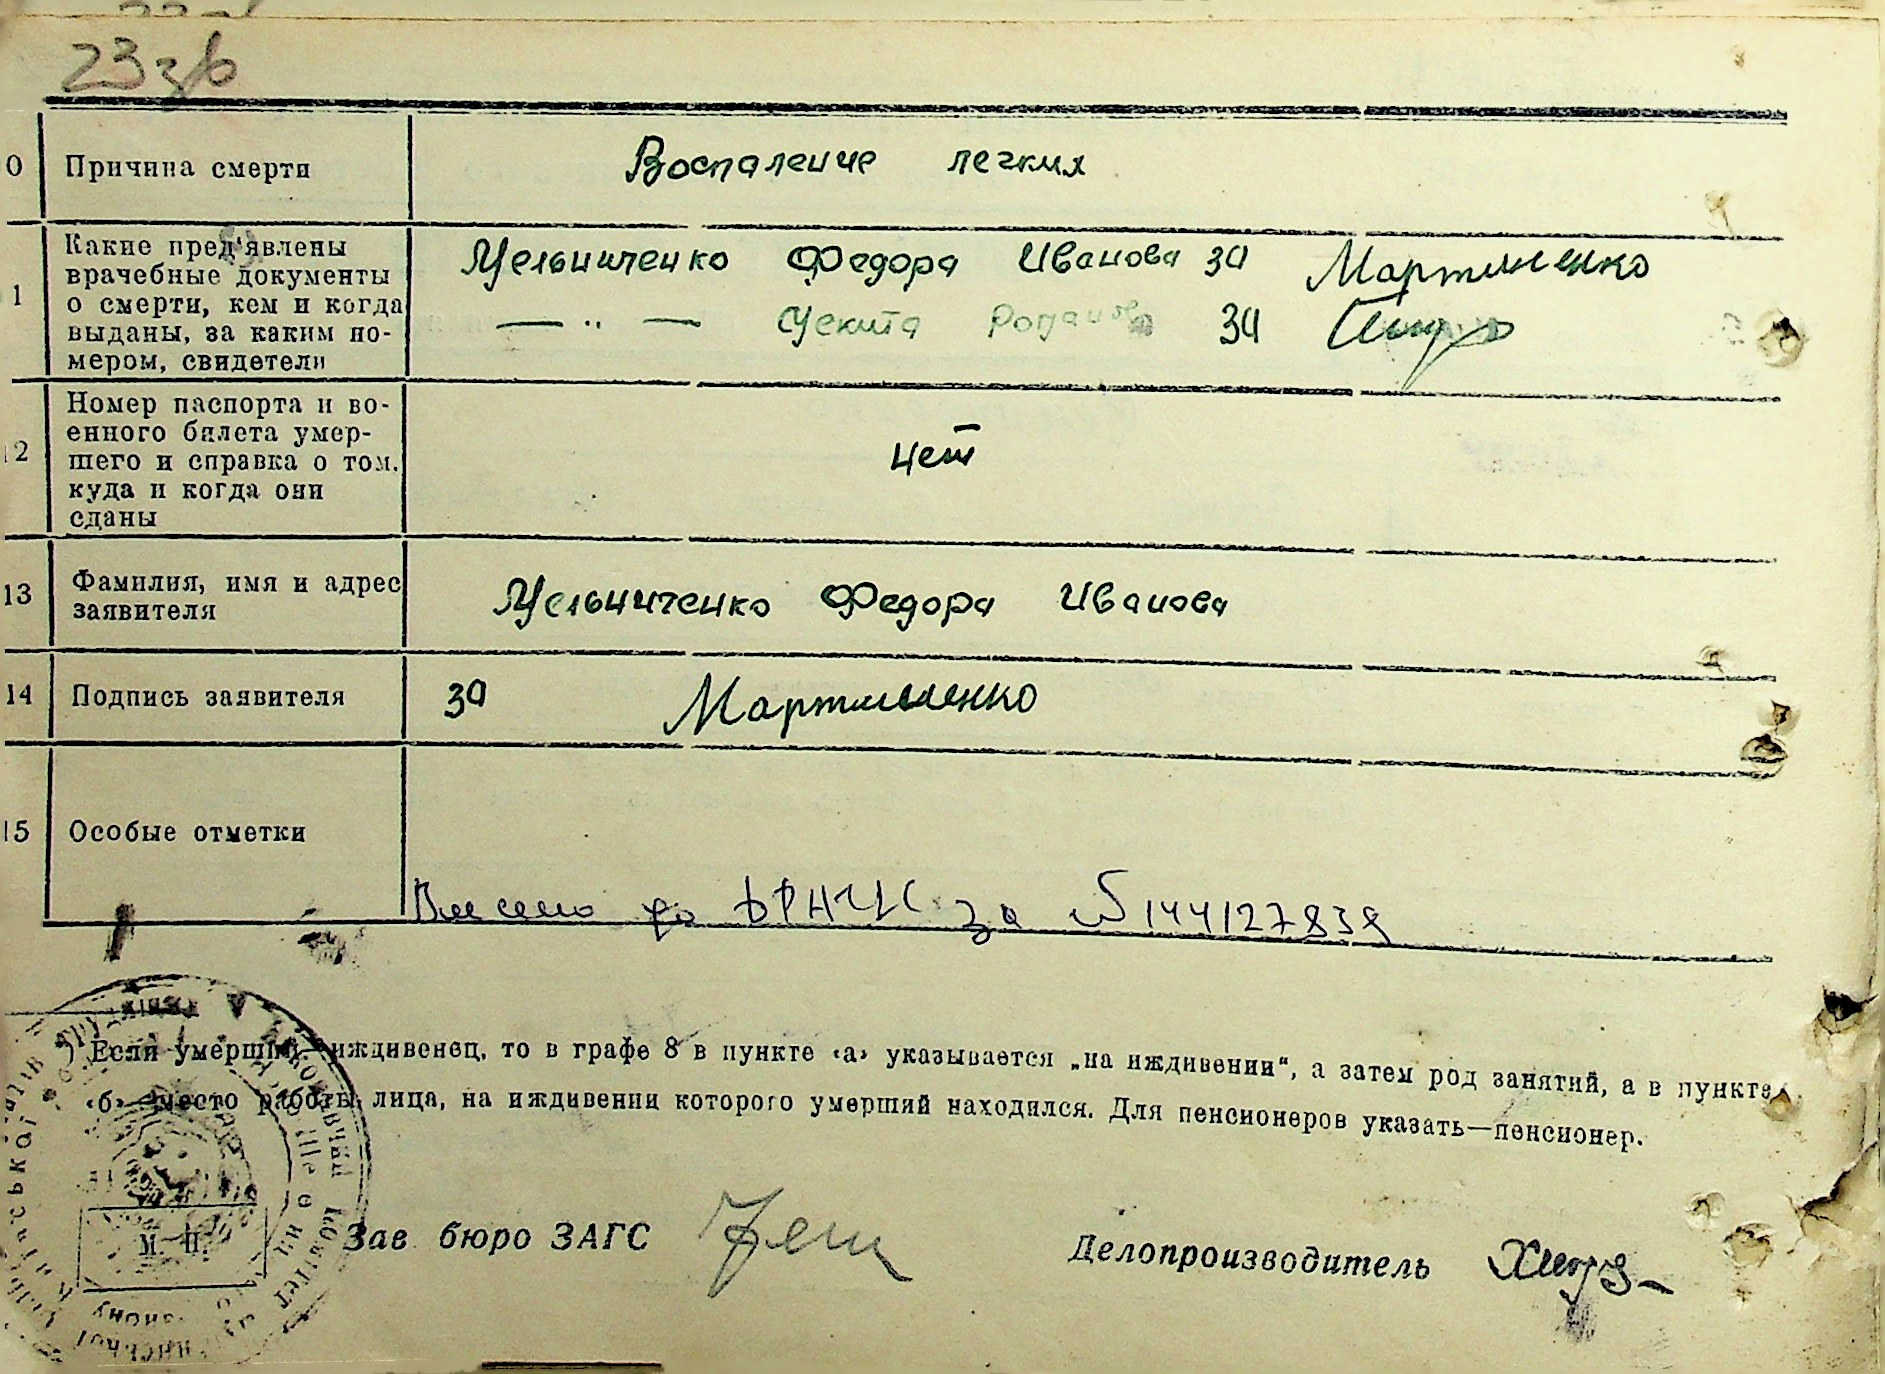 23 зв
10 Причина смерти Воспаление легких
11 Какие пред'явлены врачебные документы о смерти, кем и когда выданы, за каким номером, свидетели
Мельниченко Федора Иванова за Мартыненко
— „ — Секита за
12 Номер паспорта и военного билета умершего и справка о том, куда и когда они сданы
нет
13 Фамилия, имя и адрес заявителя Мельниченко Федора Иванова
14 Подпись заявителя за Мартыненко
15 Особые отметки
Внесено до ДРАЦС за № 144127839
*) Если умерший—иждивенец, то в графе 8 в пункте «а» указывается „на иждивении“, а затем род занятий, а в пункте
«б» место работы лица, на иждивении которого умерший находился. Для пенсионеров указать—пенсионер.
М. П.
Зав бюро ЗАГС
Делопроизводитель